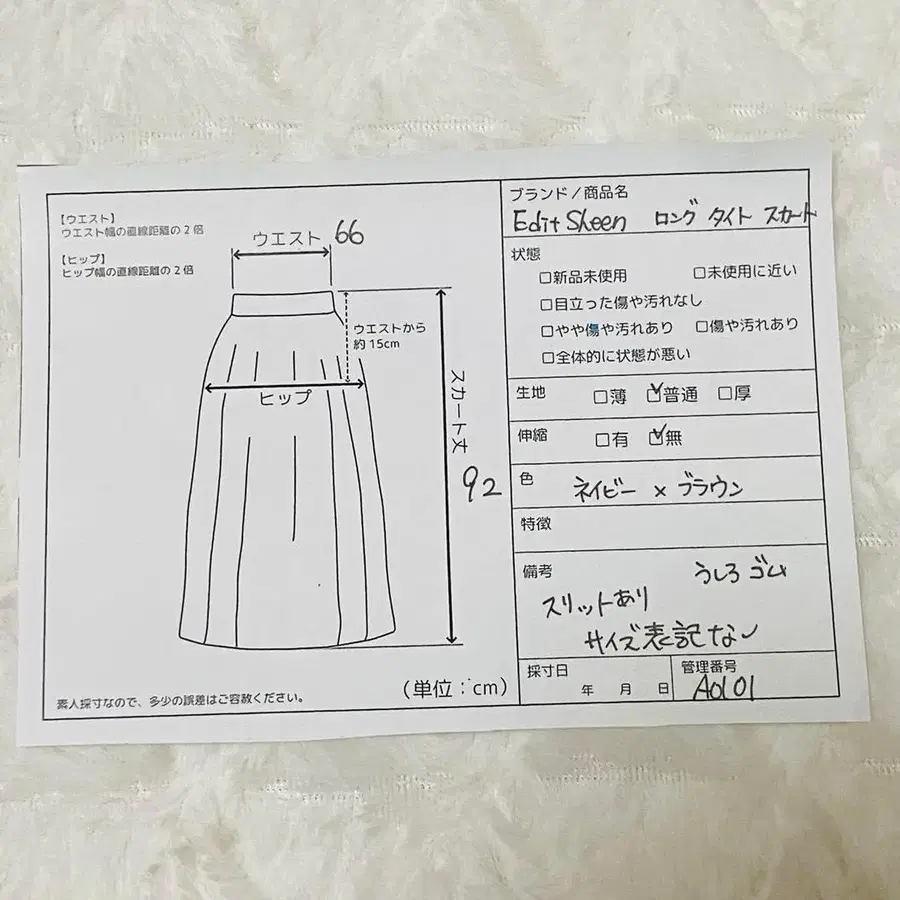 【ウエスト】
ウエスト幅の直線距離の2倍
【ヒップ】
ヒップ幅の直線距離の2倍
ウエスト 66
ウエストから
約15cm
ヒップ
スカート丈
92
(単位:cm)
素人採寸なので、多少の誤差はご容赦ください。
ブランド/商品名
Edit Sheen ロング タイト スカート
状態
□新品未使用 □未使用に近い
□目立った傷や汚れなし
□やや傷や汚れあり □傷や汚れあり
□全体的に状態が悪い
生地 □薄 ☑普通 □厚
伸縮 □有 ☑無
色 ネイビー × ブラウン
特徴
備考 うしろ ゴム
スリットあり
サイズ表記なし
採寸日
年 月 日
管理番号
A0101